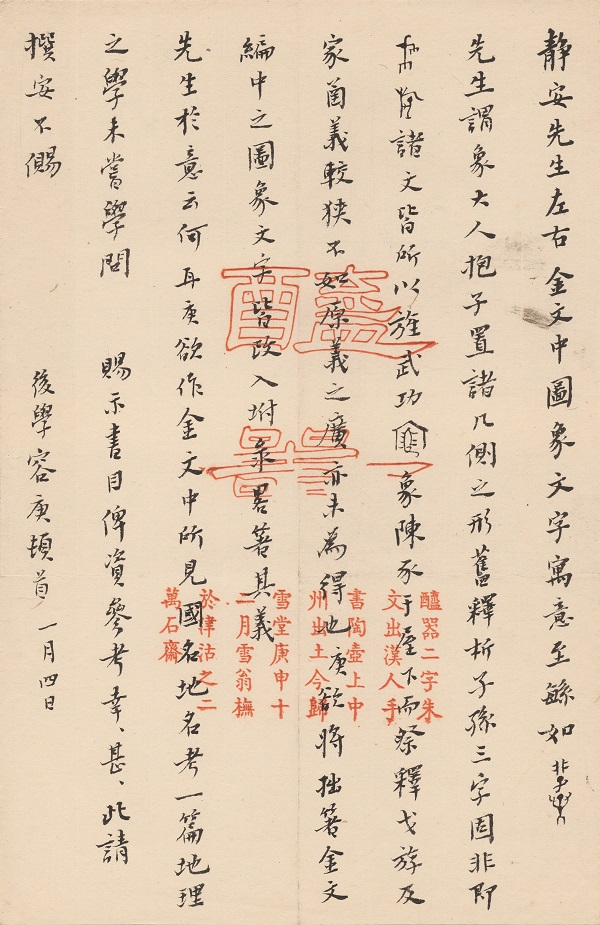 静安先生左右金文中圖象文字寓意至緐如
先生謂象大人抱子置諸几側之形舊釋析子孫三字固非即
諸文皆所以旌武功象陳豕于屋下而祭釋戈斿及
家義較狹不如原義之廣亦未為得也庚欲將拙箸金文
編中之圖象文字皆改入坿彔畧箸其義
先生於意云何耳庚欲作金文中所見國名地名考一篇地理
之學未嘗學問 賜示書目俾資參考幸、甚、此請
撰安不儩
後學容庚頓首 一月四日
醯器
醯器二字朱
文出漢人手
書陶壺上中
州出土今歸
雪堂庚申十
二月雪翁橅
於津沽之二
萬石齋